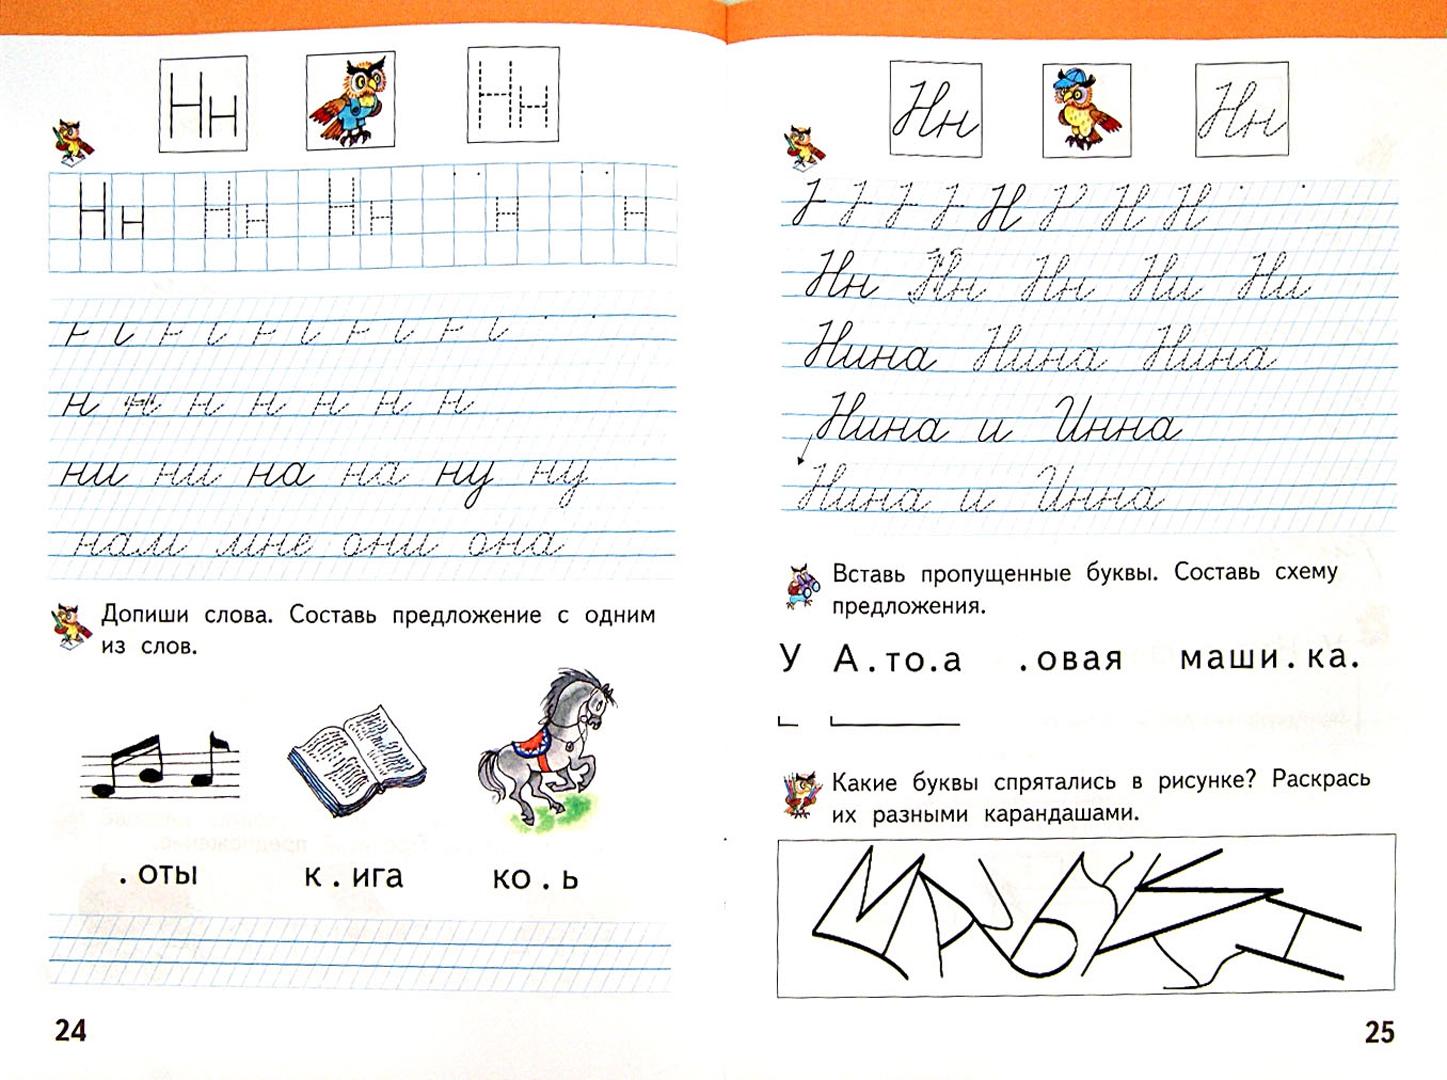 Нн Нн
Нн Нн Нн н н
н н н н н н н
ни ни на на ну ну
нам мне они она
Допиши слова. Составь предложение с одним
из слов.
.оты к.ига ко.ь
24
Нн Нн
Н Н Н
Нн Нн Нн Ни Ни
Нина Нина Нина
Нина и Инна
Нина и Инна
Вставь пропущенные буквы. Составь схему
предложения.
У А.то.а .овая маши.ка.
Какие буквы спрятались в рисунке? Раскрась
их разными карандашами.
25